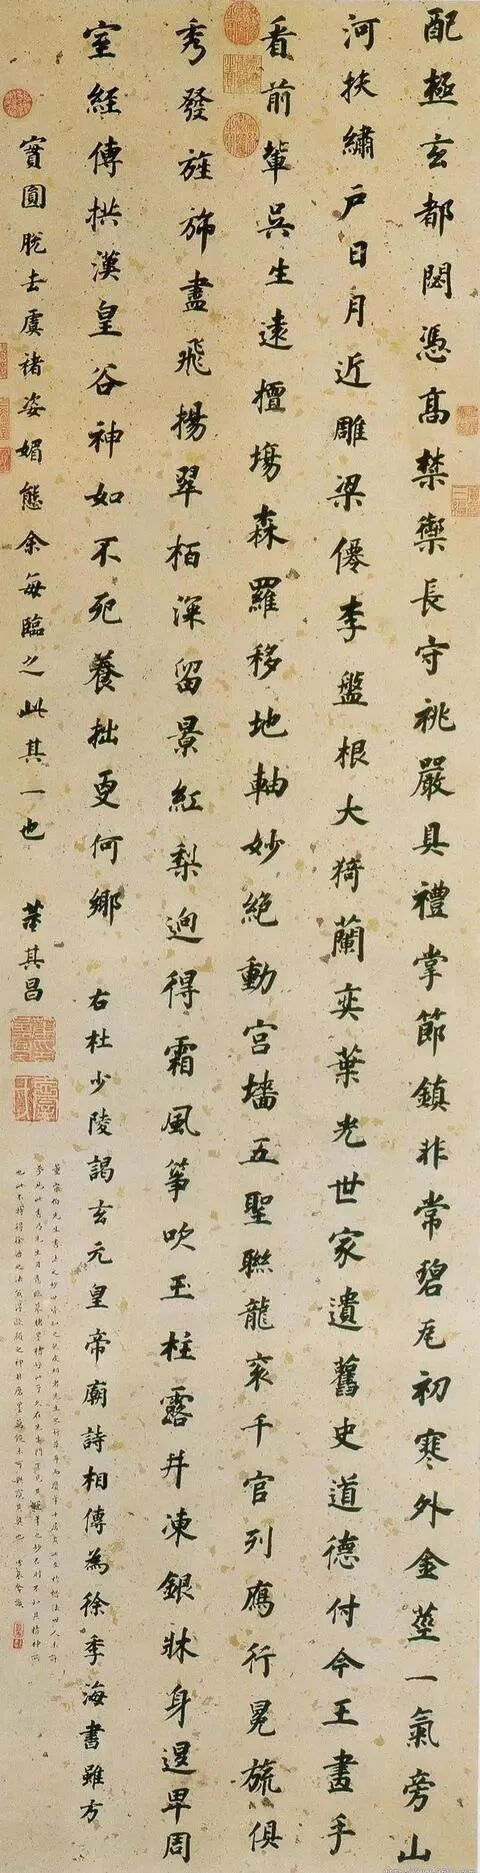 配極玄都閟憑高禁禦長守祧嚴具禮掌節鎮非常碧瓦初寒外金莖一氣旁山
河扶繡戶日月近雕梁僊李盤根大猗蘭奕葉光世家遺舊史道德付今王畫手
看前輩吳生遠擅場森羅移地軸妙絕動宮墻五聖聯龍袞千官列鴈行冕旒俱
秀發旌旆盡飛揚翠栢深留景紅梨迥得霜風箏吹玉柱露井凍銀牀身退卑周
室經傳拱漢皇谷神如不死養拙更何鄉 右杜少陵謁玄元皇帝廟詩相傳為徐季海書雖方
實圓脫去虞褚姿媚態余每臨之此其一也 董其昌